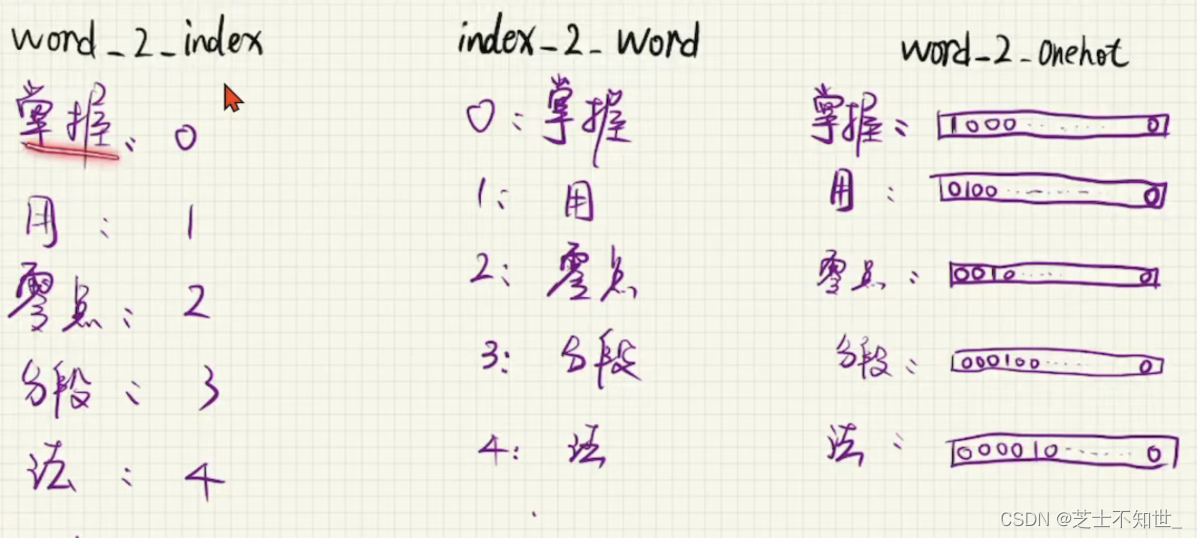 word_2_index
掌握: 0
用: 1
零点: 2
分段: 3
法: 4
index_2_word
0: 掌握
1: 用
2: 零点
3: 分段
4: 法
word_2_onehot
掌握: 1000......0
用: 0100......0
零点: 0010....0
分段: 000100....0
法: 000010......0
CSDN @芝士不知世_